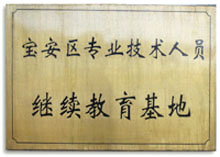 宝安区专业技术人员
继续教育基地